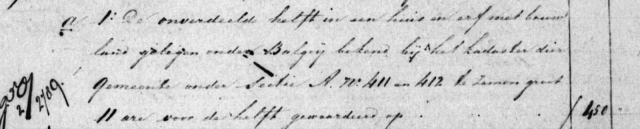 a 1e De onverdeeld helft in een huis en erf met bouw
land gelegen onder Balgoij bekend bij het kadaster dier
Gemeente onder Sectie A. No. 411 en 412 te zamen groot
11 are voor de helft gewaardeerd op . 450
2/2789.